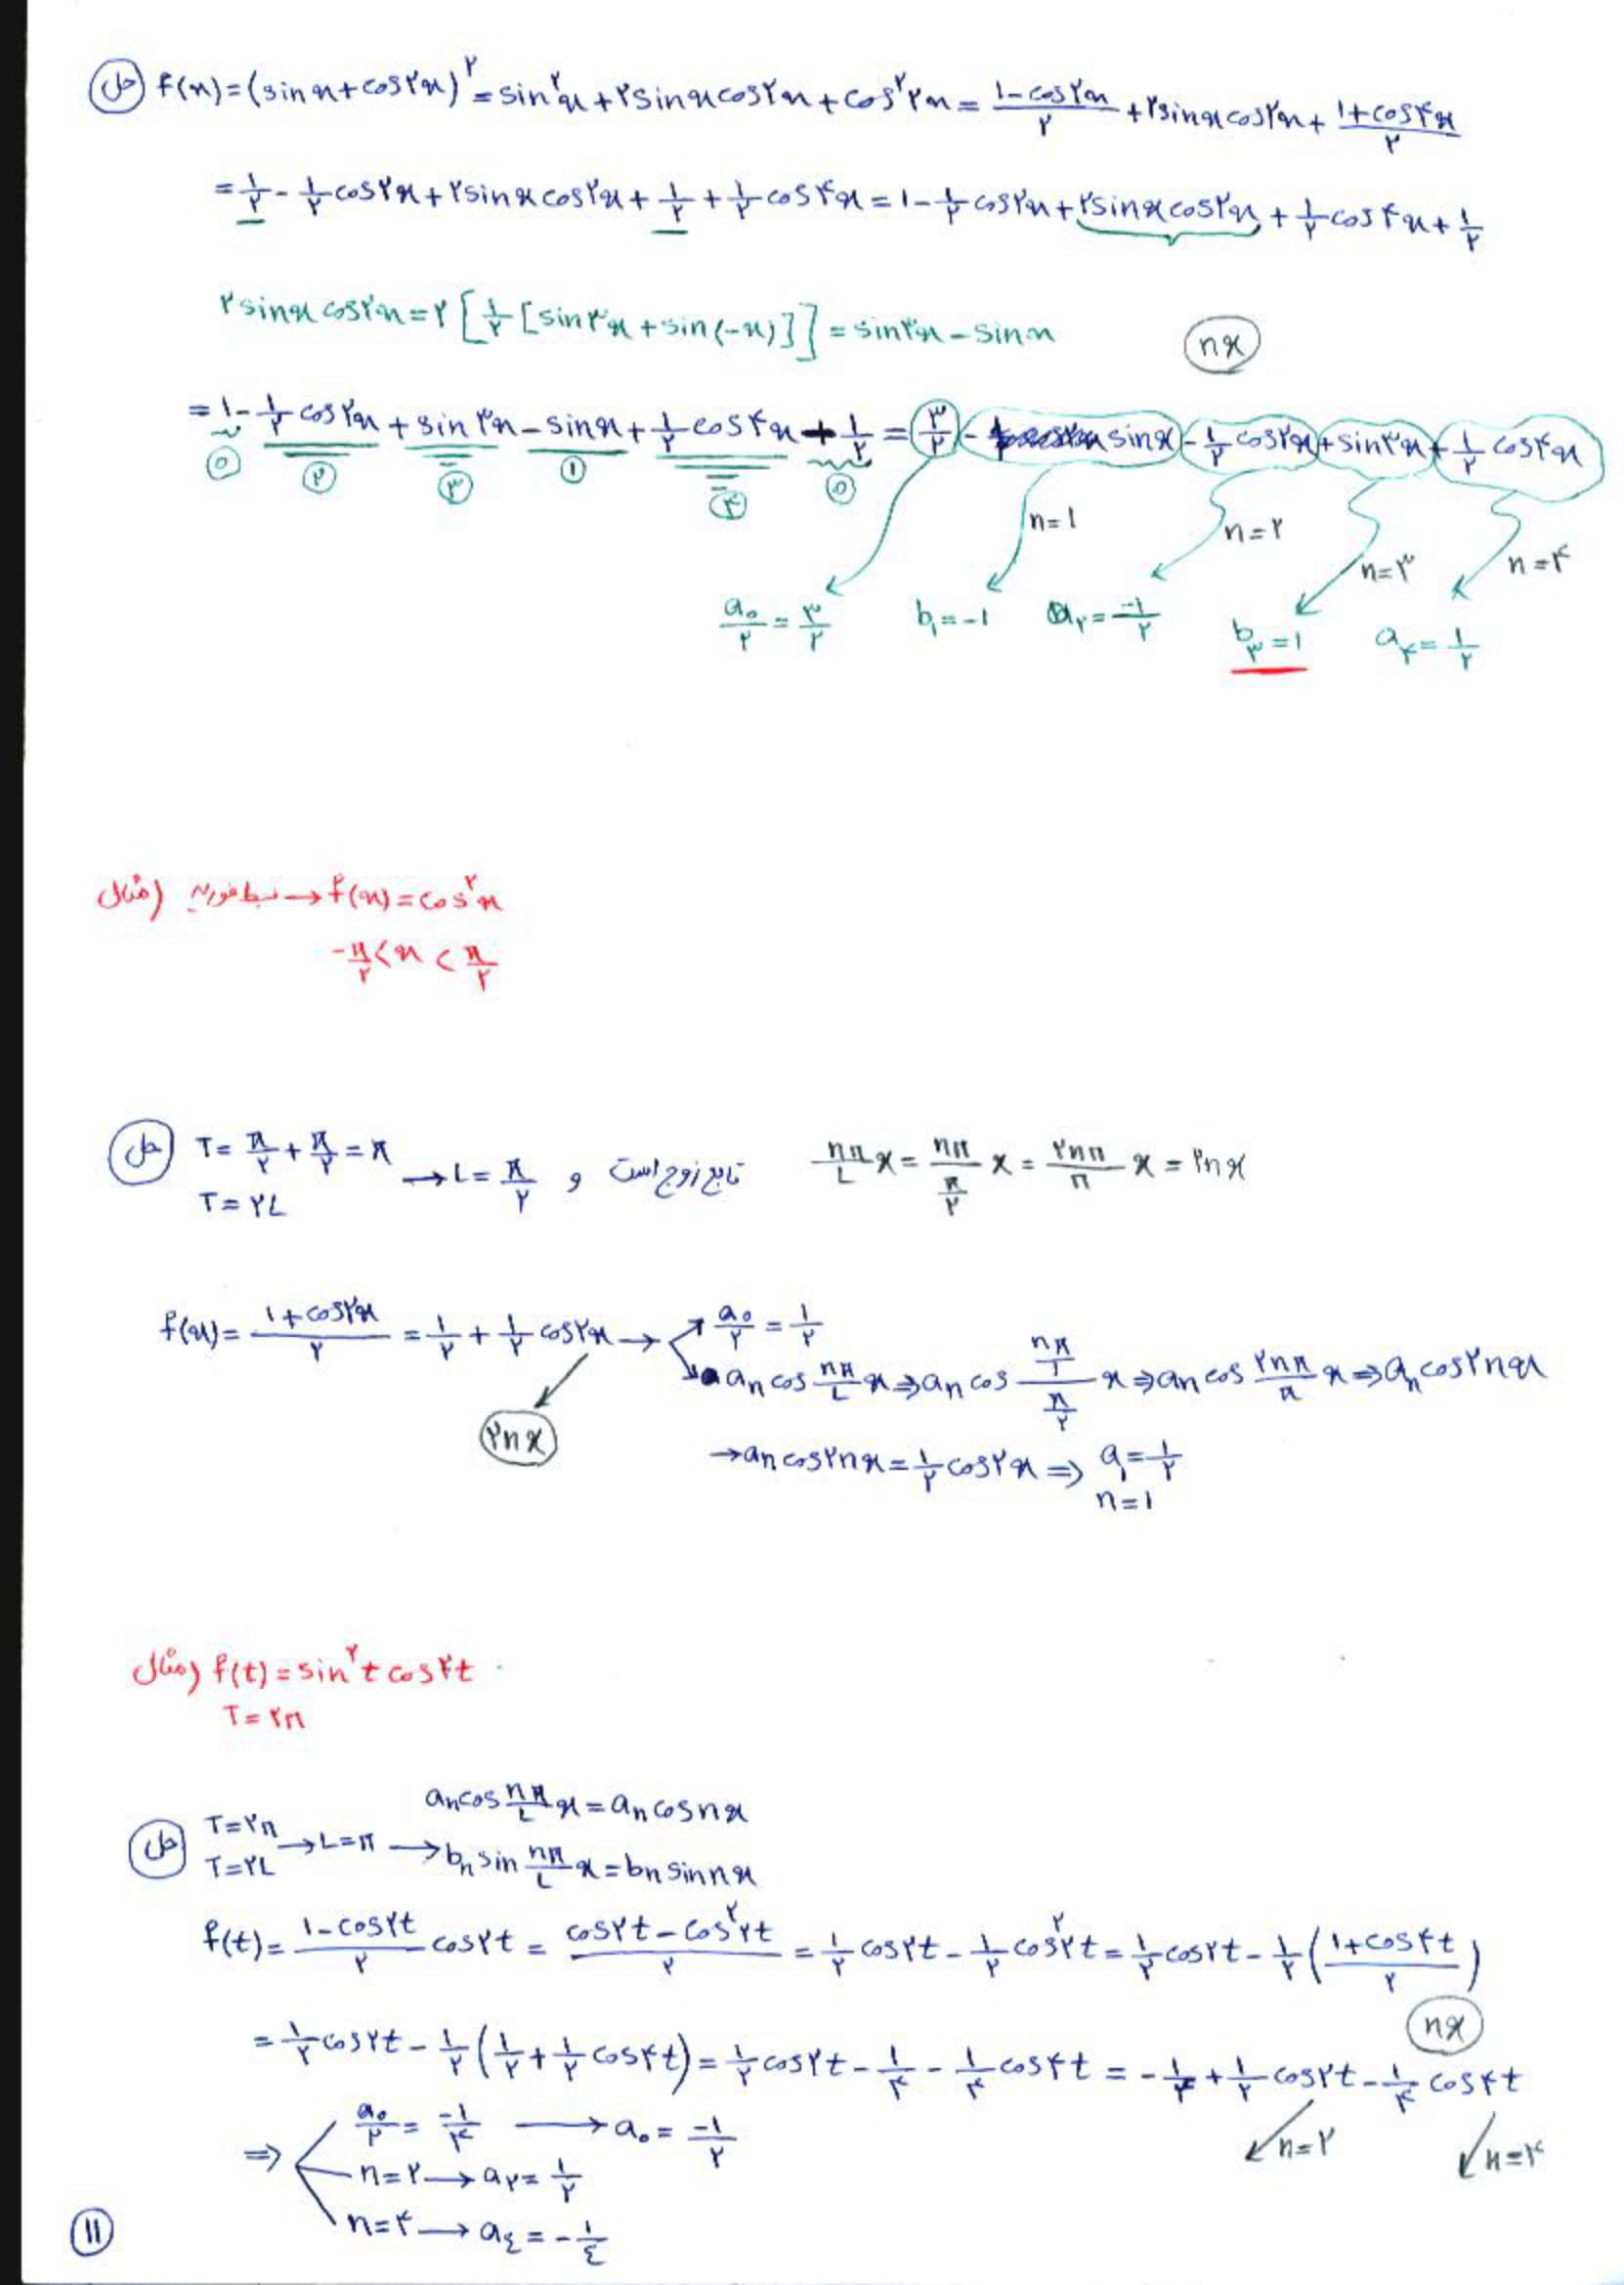 حل f(x)=(sinx+cos۲x)^۲=sin^۲x+۲sinxcos۲x+cos^۲۲x=(۱-cos۲x)/۲+۲sinxcos۲x+(۱+cos۴x)/۲
=۱/۲-۱/۲cos۲x+۲sinxcos۲x+۱/۲+۱/۲cos۴x=۱-۱/۲cos۲x+۲sinxcos۲x+۱/۲cos۴x+۱/۲
۲sinxcos۲x=۲[۱/۲[sin۳x+sin(-x)]]=sin۳x-sinx
nx
=۱-۱/۲cos۲x+sin۳x-sinx+۱/۲cos۴x+۱/۲=۳/۲-sinx-۱/۲cos۲x+sin۳x+۱/۲cos۴x
0 ۲ ۳ ۱ ۴ 0
n=۱ n=۲ n=۳ n=۴
a₀/۲=۳/۲ b₁=-۱ a۲=-۱/۲ b۳=۱ a۴=۱/۲
مثال) بسط فوریه → f(x)=cos^۲x
-π/۲<x<π/۲
حل T=π/۲+π/۲=π → L=π/۲ و تابع زوج است nπ/L x=nπ/(π/۲) x=۲nπ/π x=۲nx
T=۲L
f(x)=(۱+cos۲x)/۲=۱/۲+۱/۲cos۲x → a₀/۲=۱/۲
aₙcos nπ/L x⇒aₙcos (nπ/۱)/(π/۲) x⇒aₙcos ۲nπ/π x⇒aₙcos۲nx
۲nx
→aₙcos۲nx=۱/۲cos۲x⇒a₁=۱/۲
n=۱
مثال) f(t)=sin^۲t cos۲t
T=۲π
حل T=۲π → L=π → aₙcos nπ/L x=aₙcosnx
T=۲L bₙsin nπ/L x=bₙsinnx
f(t)=(۱-cos۲t)/۲ cos۲t=(cos۲t-cos^۲۲t)/۲=۱/۲cos۲t-۱/۲cos^۲۲t=۱/۲cos۲t-۱/۲((۱+cos۴t)/۲)
nx
=۱/۲cos۲t-۱/۲(۱/۲+۱/۲cos۴t)=۱/۲cos۲t-۱/۴-۱/۴cos۴t=-۱/۴+۱/۲cos۲t-۱/۴cos۴t
n=۲ n=۴
⇒ a₀/۲=-۱/۴ → a₀=-۱/۲
n=۲ → a۲=۱/۲
n=۴ → a٤=-۱/٤
۱۱